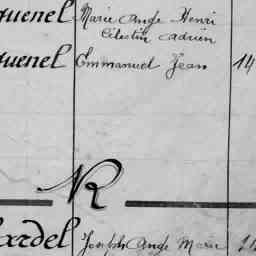 quenel Marie Ange Henri
Célestin Adrien
quenel Emmanuel Jean 14
R
ardel Joseph Ange Marie